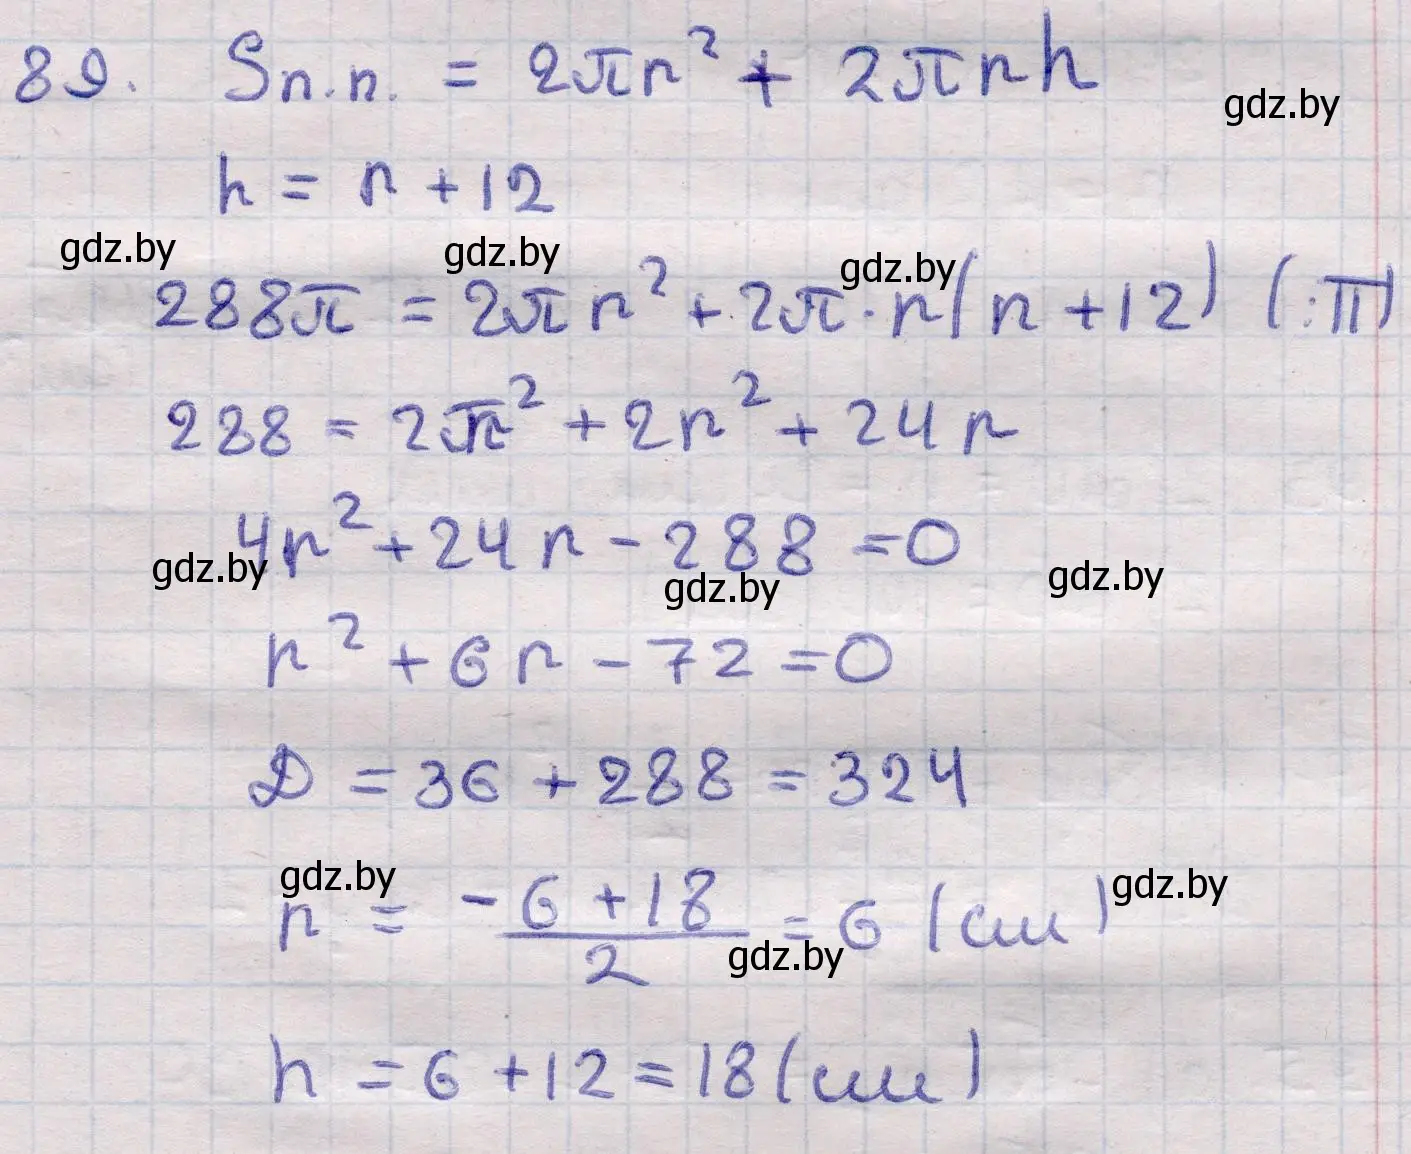 89. Sп.п. = 2πr² + 2πrh
gdz.by
h = r + 12
gdz.by gdz.by gdz.by
288π = 2πr² + 2π·r(r + 12) (:π)
288 = 2r² + 2r² + 24r
4r² + 24r - 288 = 0
gdz.by gdz.by gdz.by
r² + 6r - 72 = 0
D = 36 + 288 = 324
gdz.by gdz.by
r = (-6 + 18)/2 = 6 (см)
gdz.by
h = 6 + 12 = 18 (см)